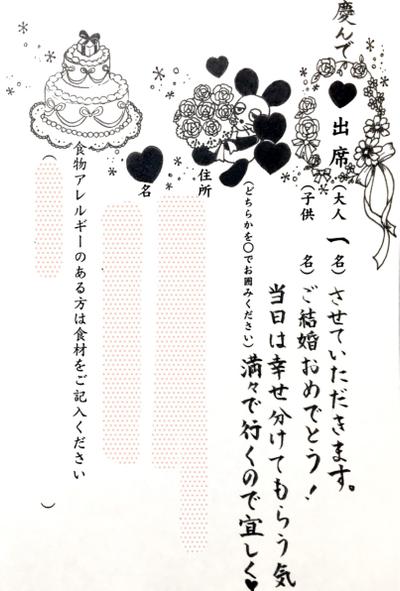 慶んで♥出席(大人 一 名)させていただきます。
(子供 名)ご結婚おめでとう!
当日は幸せ分けてもらう気
(どちらかを○でお囲みください)満々で行くので宜しく♥
住所
名
食物アレルギーのある方は食材をご記入ください
( )